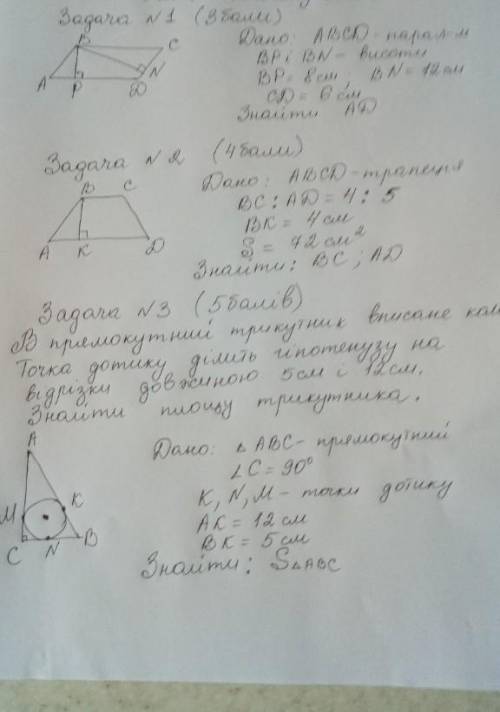 Задача №1 (3 бали)
Дано: ABCD - парал-м
BP і BN - висоти
BP = 8см, BN = 12см
CD = 6 см
Знайти AD
B C
A P D N
Задача №2 (4 бали)
Дано: ABCD - трапеція
BC : AD = 4 : 5
BK = 4 см
S = 72 см²
Знайти: BC ; AD
B C
A K D
Задача №3 (5 балів)
В прямокутний трикутник вписане кол
Точка дотику ділить гіпотенузу на
відрізки довжиною 5см і 12см.
Знайти площу трикутника.
Дано: △ABC - прямокутний
∠C = 90°
K, N, M - точки дотику
AK = 12 см
BK = 5 см
Знайти: S△ABC
A
M K
C N B